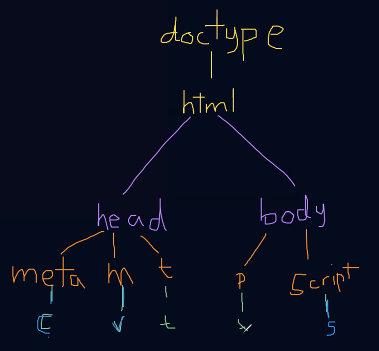 doctype
html
head body
meta m t p script
C v t x s